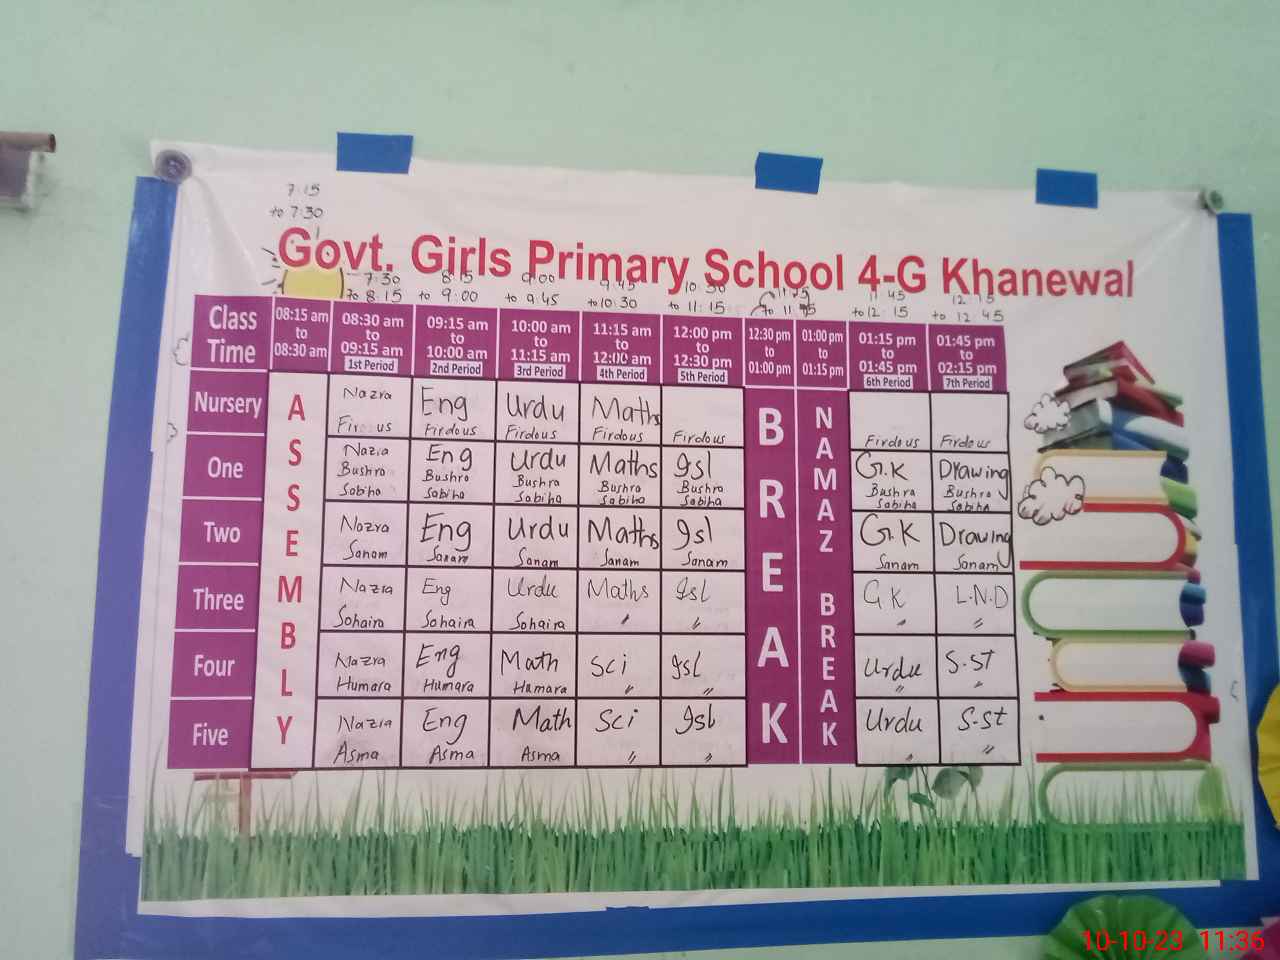 7:15
to 7:30
Govt. Girls Primary School 4-G Khanewal
7:30 8:15 9:00 9:45 10:30 11:45 12:15
to 8:15 to 9:00 to 9:45 to 10:30 to 11:15 to 12:15 to 12:45
Class Time
08:15 am to 08:30 am
08:30 am to 09:15 am 1st Period
09:15 am to 10:00 am 2nd Period
10:00 am to 11:15 am 3rd Period
11:15 am to 12:00 am 4th Period
12:00 pm to 12:30 pm 5th Period
12:30 pm to 01:00 pm
01:00 pm to 01:15 pm
01:15 pm to 01:45 pm 6th Period
01:45 pm to 02:15 pm 7th Period
ASSEMBLY
BREAK
NAMAZ BREAK
Nursery
Nazra Eng Urdu Maths
Firdous Firdous Firdous Firdous Firdous Firdous
One
Nazra Eng Urdu Maths Isl G.K Drawing
Bushra Bushra Bushra Bushra Bushra Bushra Bushra
Sabiha Sabiha Sabiha Sabiha Sabiha Sabiha Sabiha
Two
Nazra Eng Urdu Maths Isl G.K Drawing
Sanam Sanam Sanam Sanam Sanam Sanam Sanam
Three
Nazra Eng Urdu Maths Isl G K L.N.D
Sohaira Sohaira Sohaira " " " "
Four
Nazra Eng Math Sci Isl Urdu S.St
Humara Humara Humara " " " "
Five
Nazra Eng Math Sci Isl Urdu S.St
Asma Asma Asma " " " "
10-10-23 11:36